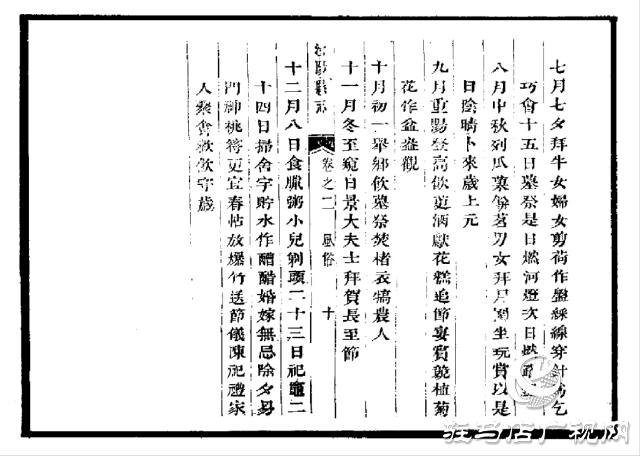 七月七夕拜牛女婦女剪荷作盤綵線穿針為乞
巧會十五日墓祭是日燃河燈次日燃
八月中秋列瓜菓餅茗男女拜月團坐玩賞以是
日陰晴卜來歲上元
九月重陽登高飲更酒獻花糕追節宴賓競植菊
花作盆盎觀
十月初一舉鄉飲墓祭焚楮衣犒農人
十一月冬至窺日景大夫士拜賀長至節
卷之二 風俗 十
十二月八日食臘粥小兒剃頭二十三日祀竈二
十四日掃舍宇貯水作醴醋婚嫁無忌除夕易
門神桃符更宜春帖放爆竹送節儀陳祀禮家
人聚會歡飲守歲
驻马店广视网